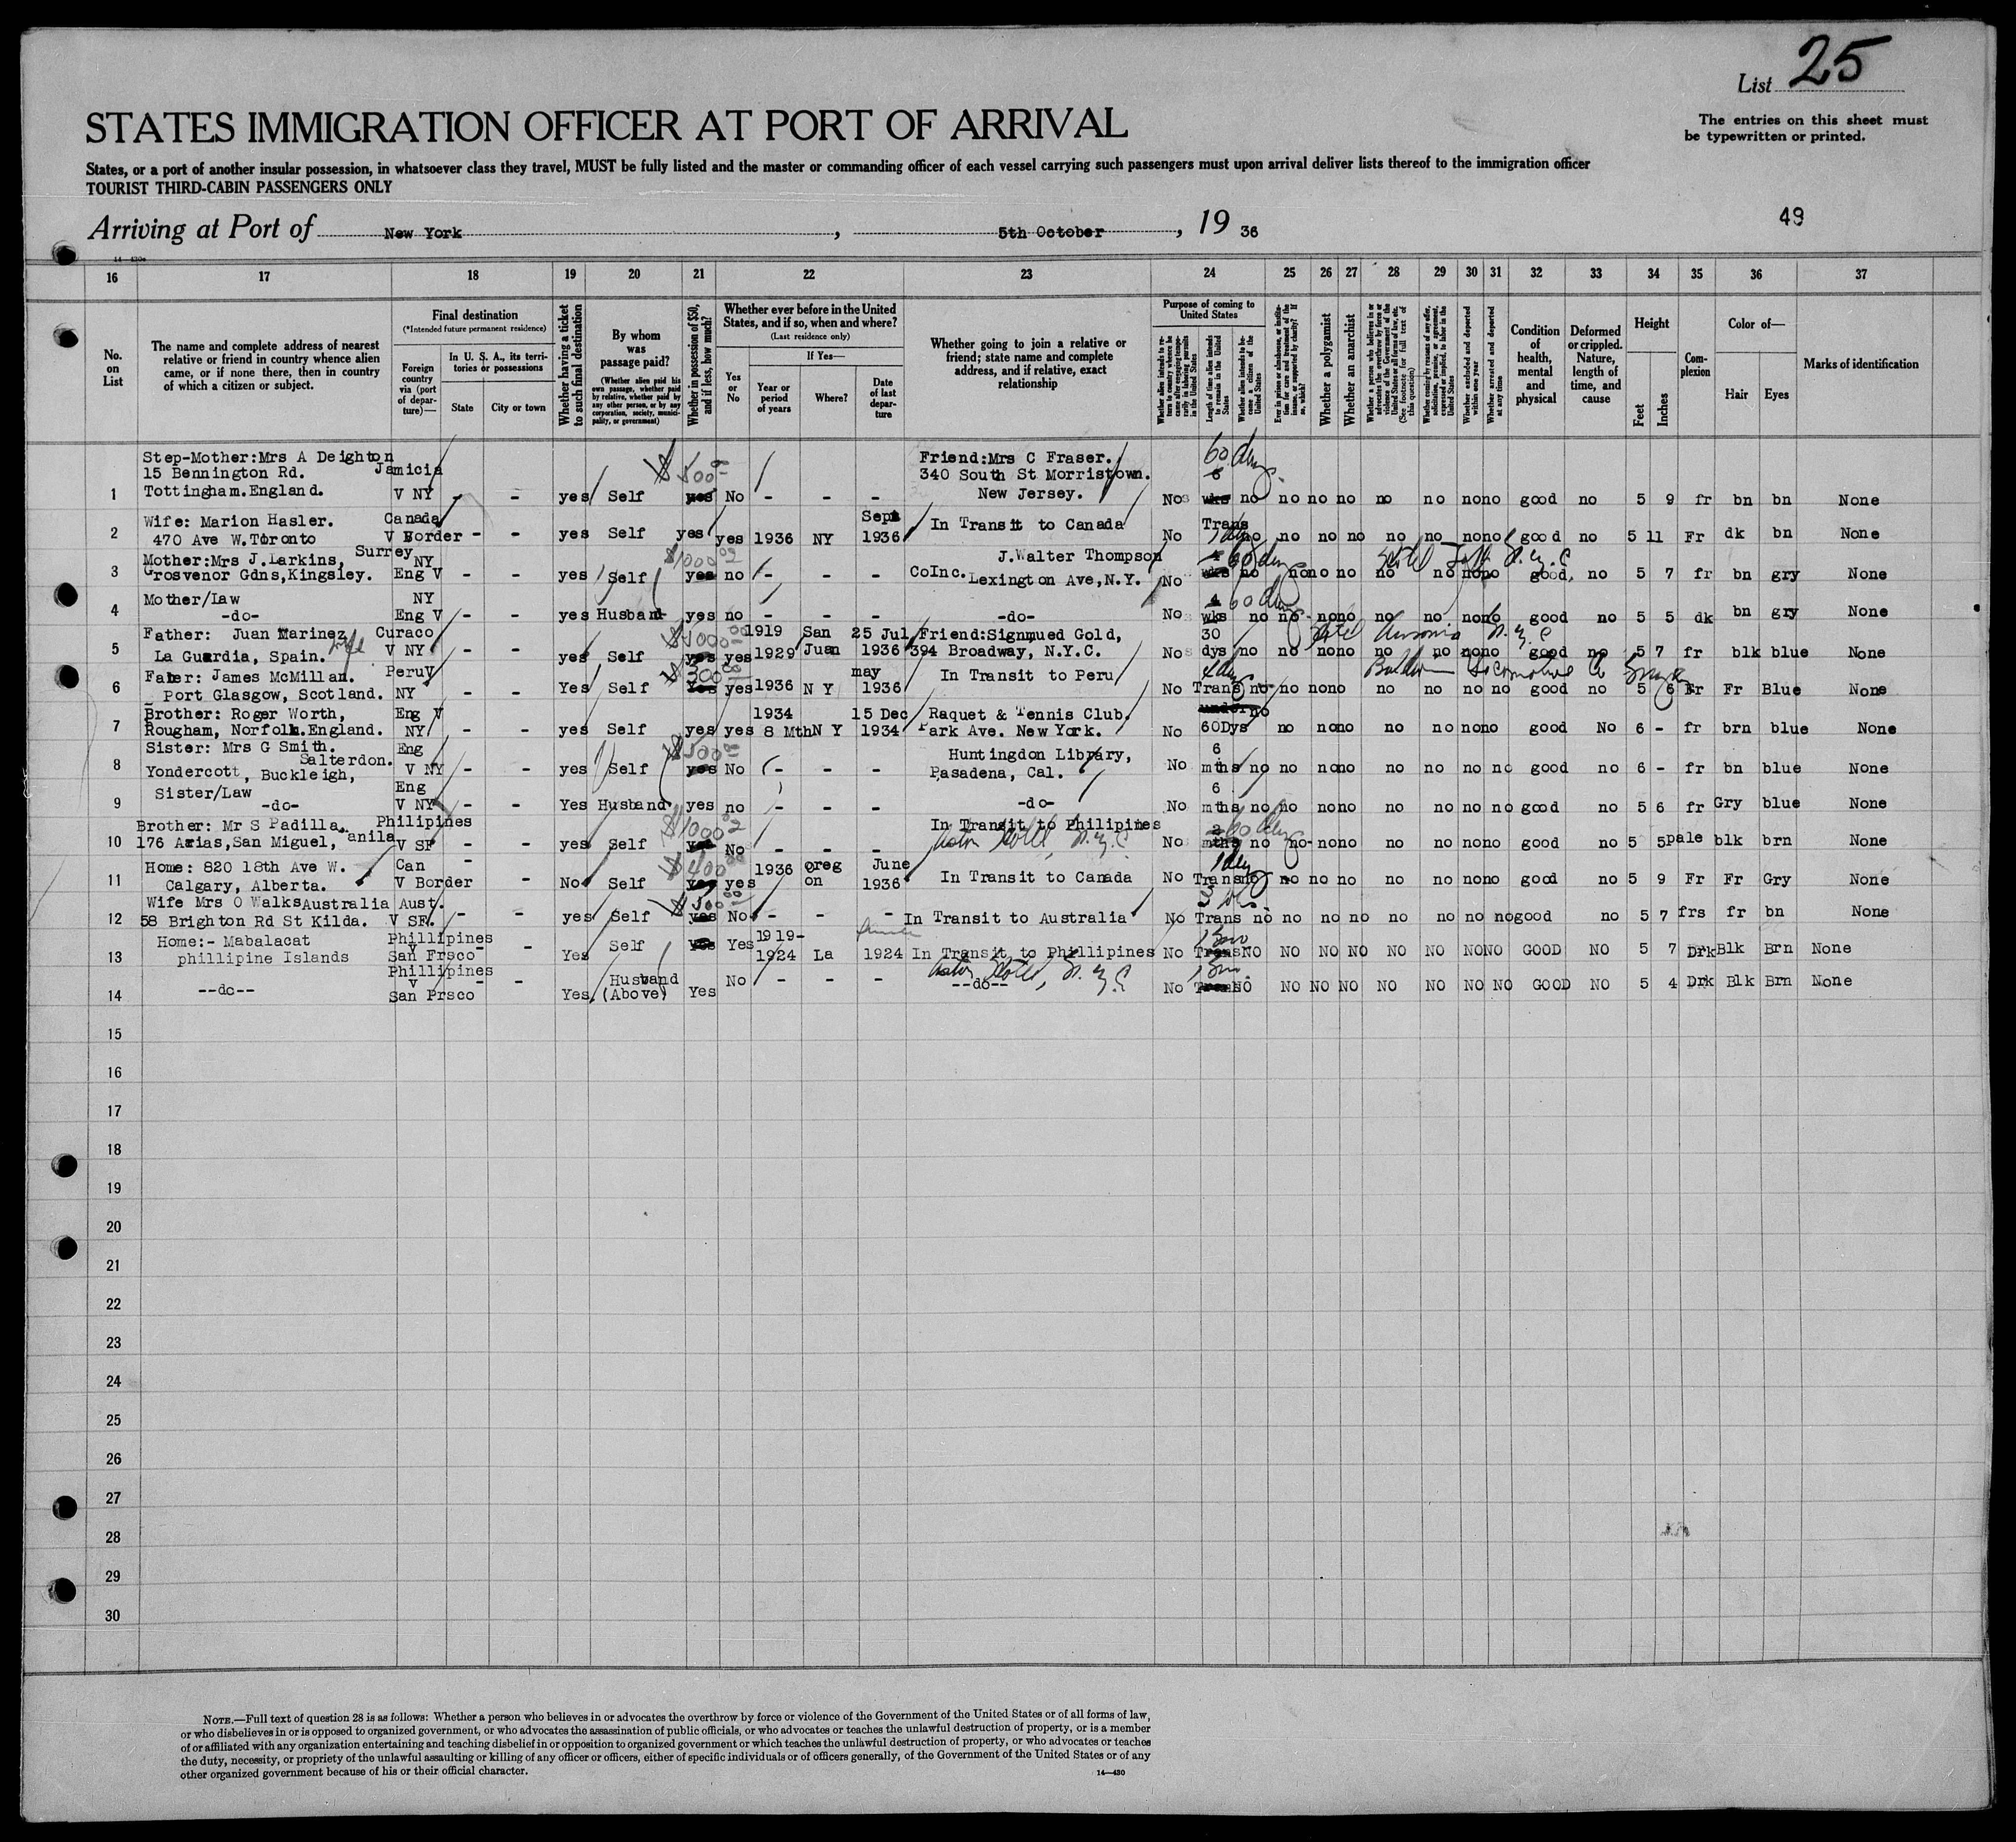 List 25
STATES IMMIGRATION OFFICER AT PORT OF ARRIVAL
The entries on this sheet must
be typewritten or printed.
States, or a port of another insular possession, in whatsoever class they travel, MUST be fully listed and the master or commanding officer of each vessel carrying such passengers must upon arrival deliver lists thereof to the immigration officer
TOURIST THIRD-CABIN PASSENGERS ONLY
Arriving at Port of New York, 5th October, 19 36
49
16 17 18 19 20 21 22 23 24 25 26 27 28 29 30 31 32 33 34 35 36 37
No. on List
The name and complete address of nearest relative or friend in country whence alien came, or if none there, then in country of which a citizen or subject.
Final destination
(*Intended future permanent residence)
Foreign country via (port of departure)—
In U. S. A., its territories or possessions
State
City or town
Whether having a ticket to such final destination
By whom was passage paid?
(Whether alien paid his own passage, whether paid by relative, whether paid by any other person, or by any corporation, society, municipality, or government)
Whether in possession of $50, and if less, how much?
Whether ever before in the United States, and if so, when and where?
(Last residence only)
Yes or No
If Yes—
Year or period of years
Where?
Date of last departure
Whether going to join a relative or friend; state name and complete address, and if relative, exact relationship
Purpose of coming to United States
Length of time alien intends to remain in the United States
Whether alien intends to become a citizen of the United States
Whether a polygamist
Whether an anarchist
Whether excluded and deported within one year
Whether arrested and deported at any time
Condition of health, mental and physical
Deformed or crippled. Nature, length of time, and cause
Height
Feet
Inches
Complexion
Color of—
Hair
Eyes
Marks of identification
Step-Mother:Mrs A Deighton Friend:Mrs C Fraser. 60 days
15 Bennington Rd. Jamicia $500 340 South St Morristown. 6
1 Tottingham.England. V NY - - yes Self yes No - - - New Jersey. No wks no no no no no no nono good no 5 9 fr bn bn None
Wife: Marion Hasler. Canada Sept In Transit to Canada Trans
2 470 Ave W.Toronto V Border - - yes Self yes yes 1936 NY 1936 No no no no no no no nono good no 5 11 Fr dk bn None
Mother:Mrs J.Larkins, Surrey NY $1000 J.Walter Thompson 4 60 days Hotel N.Y.C
3 Grosvenor Gdns,Kingsley. Eng V - - yes Self yes no - - - CoInc. Lexington Ave,N.Y. No wks no no no no no no nono good, no 5 7 fr bn gry None
Mother/Law NY 4 60 days
4 -do- Eng V - - yes Husband yes no - - - -do- No wks no no nono no no nono good no 5 5 dk bn gry None
Father: Juan Marinez Curaco $1000 1919 San 25 Jul Friend:Signmued Gold, 30 Hotel Ansonia N.Y.C
5 La Guardia, Spain. V NY - - yes Self yes yes 1929 Juan 1936 394 Broadway, N.Y.C. No dys no no nono no no nono good no 5 7 fr blk blue None
Faher: James McMillan. Peru V $300 may In Transit to Peru Baldwin Locomotive Co
6 Port Glasgow, Scotland. NY - - Yes Self Yes yes 1936 N Y 1936 No Trans no no nono no no no no good no 5 6 Fr Fr Blue None
Brother: Roger Worth, Eng V 1934 15 Dec Raquet & Tennis Club. under no
7 Rougham, Norfolk.England. NY - - yes Self yes yes 8 Mth N Y 1934 Park Ave. New York. No 60Dys no nono no no nono good No 6 - fr brn blue None
Sister: Mrs G Smith. Eng $500 Huntingdon Library, 6
Salterdon.
8 Yondercott, Buckleigh, V NY - - yes Self yes No - - - Pasadena, Cal. No mths no no nono no no no no good no 6 - fr bn blue None
Sister/Law Eng 6
9 -do- V NY - - Yes Husband yes no - - - -do- No mths no no nono no no no no good no 5 6 fr Gry blue None
Brother: Mr S Padilla. Philipines $1000 In Transit to Philipines 2 60 days
10 176 Arias,San Miguel, anila V SF - - yes Self yes No - - - Astor Hotel, N.Y.C No mths no no- nono no no nono good no 5 5 pale blk brn None
Home: 820 18th Ave W. Can - $400 1936 oreg June 1 day
11 Calgary, Alberta. V Border - No Self yes yes on 1936 In Transit to Canada No Trans no no no no no no nono good no 5 9 Fr Fr Gry None
Wife Mrs O Walks Australia Aust. $500
12 58 Brighton Rd St Kilda. V SF. - - yes Self yes No - - - In Transit to Australia No Trans no no no no no no no no good no 5 7 frs fr bn None
Home:- Mabalacat Phillipines V - - Self Yes Yes 1919-
13 phillipine Islands San Frsco Yes 1924 La 1924 In Transit to Phillipines No Trans NO NO NO NO NO NO NONO GOOD NO 5 7 Drk Blk Brn None
Phillipines V - - Husband No - - - Astor Hotel, N.Y.C
14 --do-- San Frsco Yes. (Above) Yes --do-- No Trans NO NO NO NO NO NO NO NO GOOD NO 5 4 Drk Blk Brn None
15
16
17
18
19
20
21
22
23
24
25
26
27
28
29
30
NOTE.—Full text of question 28 is as follows: Whether a person who believes in or advocates the overthrow by force or violence of the Government of the United States or of all forms of law,
or who disbelieves in or is opposed to organized government, or who advocates the assassination of public officials, or who advocates or teaches the unlawful destruction of property, or is a member
of or affiliated with any organization entertaining and teaching disbelief in or opposition to organized government or which teaches the unlawful destruction of property, or who advocates or teaches
the duty, necessity, or propriety of the unlawful assaulting or killing of any officer or officers, either of specific individuals or of officers generally, of the Government of the United States or of any
other organized government because of his or their official character.
14—430